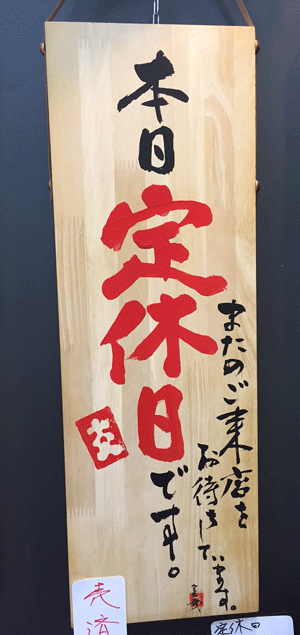 本日
定休日
です。
またのご来店を
お待ちしています。
売済
定休日